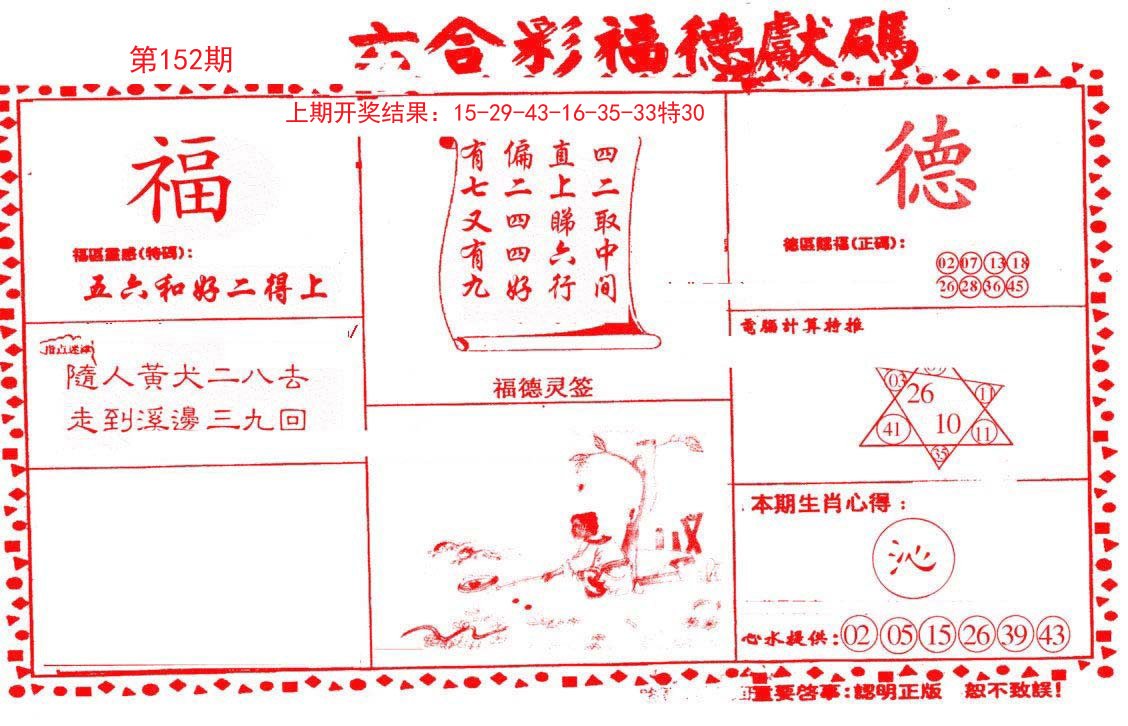 第152期
六合彩福德獻碼
上期开奖结果：15-29-43-16-35-33特30
福
福區靈感(特碼)：
五六和好二得上
隨人黃犬二八去
走到溪邊三九回
四二取中间
直上睇六行
偏二四四好
有七又有九
福德灵签
德
德區賜福(正碼)：
02 07 13 18
26 28 36 45
電腦計算特推
03 26 11
41 10 11
35
本期生肖心得：
沁
心水提供：02 05 15 26 39 43
重要啓事：認明正版 恕不致誤！